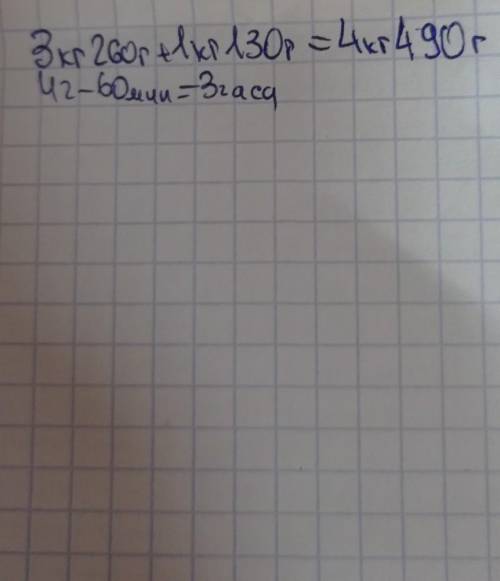 3кг 260г + 1кг 130г = 4кг 490г
4г - 60мин = 3гаса